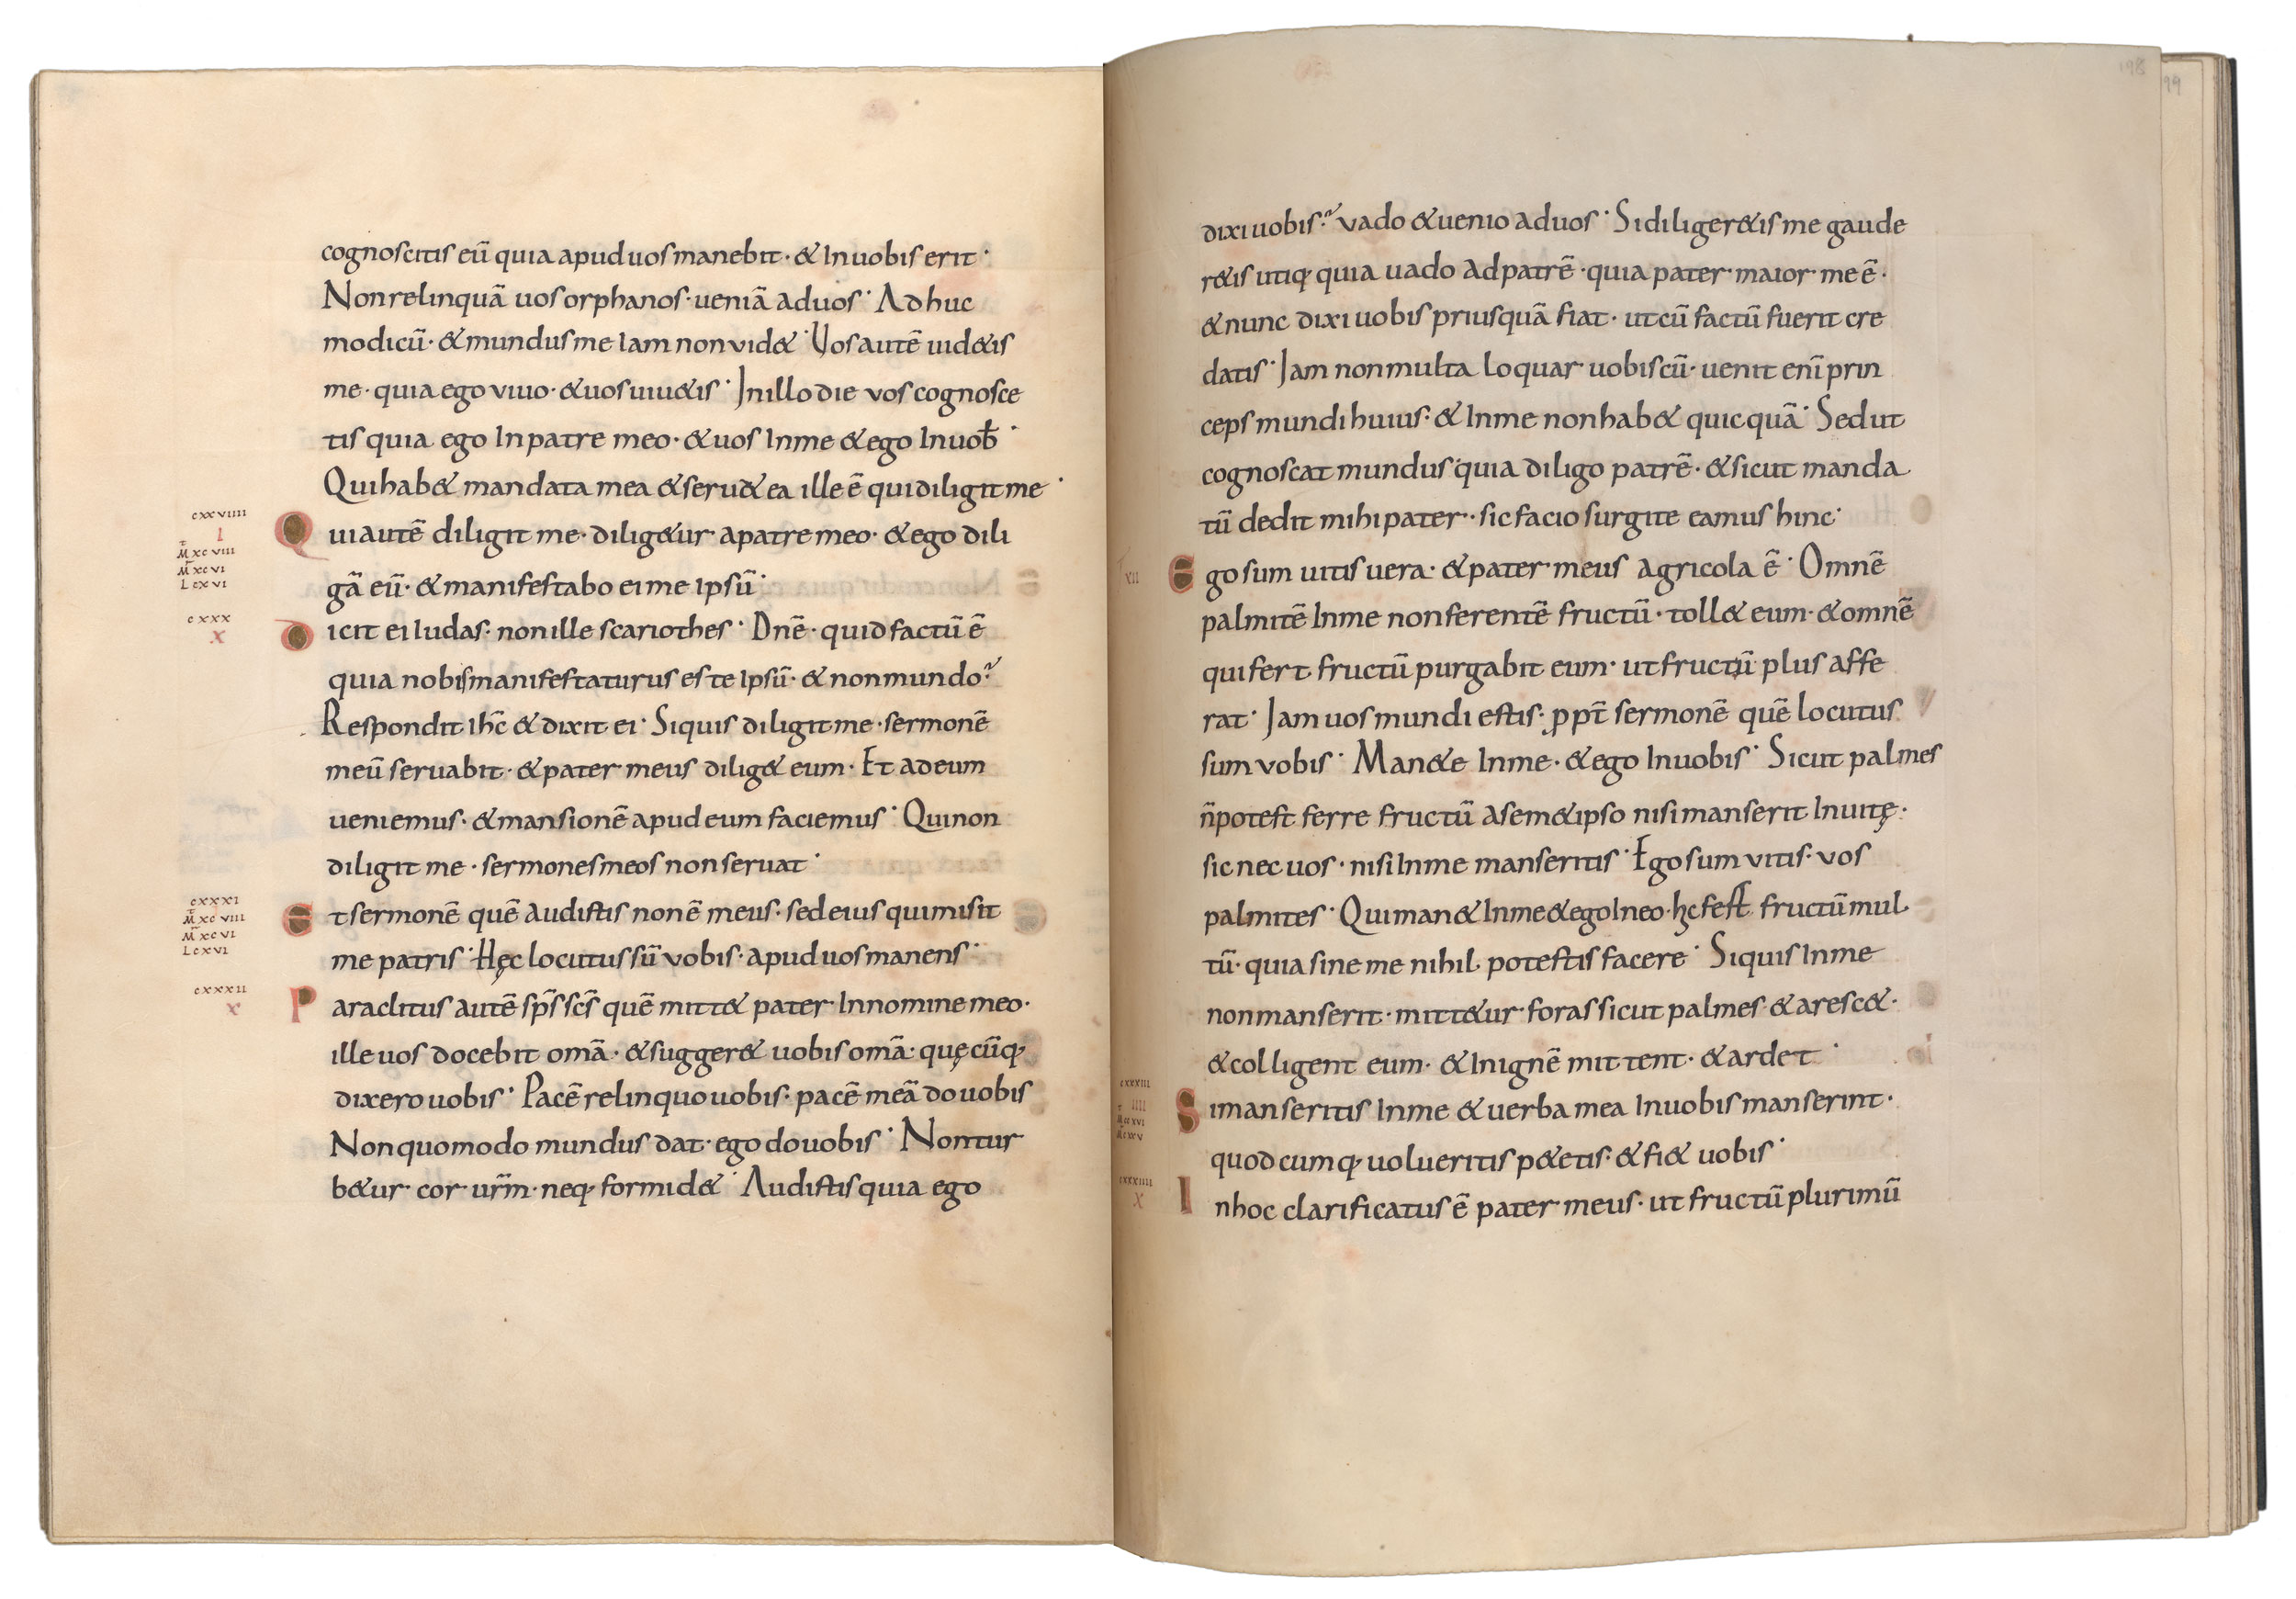 cognoscitis eū quia apud uos manebit· & In uobis erit·
Non relinquā uos orphanos· ueniā ad uos· Adhuc
modicū· & mundus me Iam non vid&· Uos autē uid&is
me· quia ego vivo· & uos uiu&is· In illo die vos cognosce
tis quia ego In patre meo· & uos Inme & ego In uob̄·
Qui hab& mandata mea & seru& ea ille ē qui diligit me·
cxxviiii
I
Qui autē diligit me· dilig&ur a patre meo· & ego dili
M̄ xcviii
M̄ xcvi
L cxvi
gā eū· & manifestabo ei me Ipsū·
cxxx
x
Dicit ei Iudas· non ille scariothes· Dn̄e· quid factū ē
quia nobis manifestaturus es te Ipsū· & non mundo?
Respondit ih̄c & dixit ei· Siquis diligit me· sermonē
meū seruabit· & pater meus dilig& eum· Et ad eum
ueniemus· & mansionē apud eum faciemus· Qui non
diligit me· sermones meos non seruat·
cxxxi
M̄ xcviii
M̄ xcvi
L cxvi
Et sermonē quē audistis non ē meus· sed eius qui misit
me patris· Hęc locutus sū vobis· apud uos manens·
cxxxii
x
Paraclitus autē sp̄s sc̄s quē mitt& pater In nomine meo·
ille uos docebit om̄a· & sugger& uobis om̄a quęcūq;
dixero uobis· Pacē relinquo uobis· pacē meā do uobis
Non quomodo mundus dat· ego do uobis· Non tur
b&ur cor ur̄m· neq; formid&· Audistis quia ego
198
99
dixi uobis? vado & uenio ad uos· Si diliger&is me gaude
r&is utiq; quia uado ad patrē· quia pater maior me ē·
& nunc dixi uobis priusquā fiat· ut cū factū fuerit cre
datis· Jam non multa loquar uobiscū· uenit enī prin
ceps mundi huius· & Inme non hab& quicquā· Sed ut
cognoscat mundus quia diligo patrē· & sicut manda
tū dedit mihi pater· sic facio surgite eamus hinc·
xii
Ego sum uitis uera· & pater meus agricola ē· Omnē
palmitē Inme non ferentē fructū· toll& eum· & omnē
qui fert fructū purgabit eum· ut fructū plus affe
rat· Jam uos mundi estis· ꝓpt̄ sermonē quē locutus
sum vobis· Man&e Inme· & ego In uobis· Sicut palmes
n̄ potest ferre fructū asem&ipso nisi manserit In uitę·
sic nec uos· nisi Inme manseritis· Ego sum vitis· vos
palmites· Qui man& Inme & ego In eo· hc fest fructū mul
tū· quia sine me nihil potestis facere· Siquis Inme
non manserit· mitt&ur foras sicut palmes· & aresc&·
& colligent eum· & In ignē mittent· & ardet·
cxxxiii
iiii
Si manseritis Inme & verba mea In uobis manserint·
quodcumq; uolueritis p&etis· & fi& uobis·
cxxxiiii
X
In hoc clarificatus ē pater meus· ut fructū plurimū